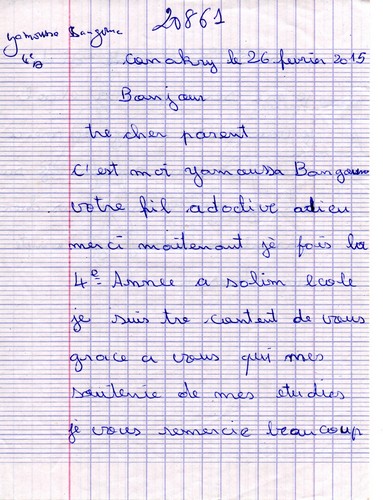 20861
yamoussa Bangoura
4e B
conakry le 26 fevrier 2015
Bonjour
tre cher parent
c'est moi yamoussa Bangoura
votre fil adodive adieu
merci maitenant je fois la
4e Annee a solim ecole
je suis tre content de vous
grace a vous qui mes
soutenie de mes etudies
je vous remercie beaucoup